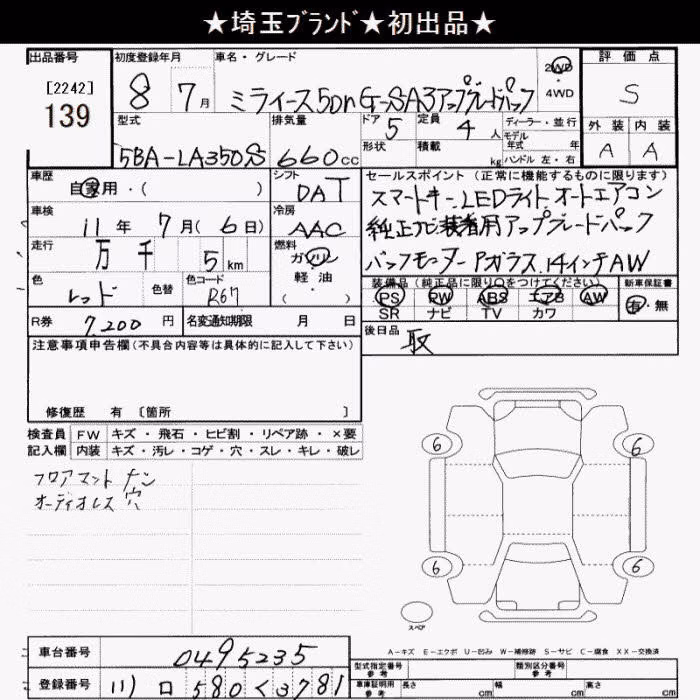 ★埼玉ﾌﾞﾗﾝﾄﾞ★初出品★
出品番号
[2242]
139
初度登録年月
8 7月
車名・グレード
ミライース5Dr G-SA3アップグレードパック
2WD
・4WD
評価点
S
外装 内装
A A
型式
5BA-LA350S
排気量
660cc
ドア 5
形状
定員 4人
積載 kg
ディーラー・並行
モデル
年式 年
ハンドル 左・右
車歴
自家用・( )
シフト
DAT
車検
11年 7月(6日)
冷房
AAC
走行
万 千 5km
燃料
ガソリン
軽油
( )
色
レッド
色替
色コード
R67
R券 7,200円
名変通知期限 月 日
セールスポイント(正常に機能するものに限ります)
スマートキー.LEDライト オートエアコン
純正ナビ装着用アップグレードパック
バックモニター Pガラス.14インチAW
装備品(純正品に限り○をつけてください)
PS PW ABS エアB AW
SR ナビ TV カワ
新車保証書
有・無
後日品
取
注意事項申告欄(不具合内容等は具体的に記入して下さい)
修復歴 有〔箇所 〕
検査員 FW キズ・飛石・ヒビ割・リペア跡・×要
記入欄 内装 キズ・汚レ・コゲ・穴・スレ・キレ・破レ
フロアマットナシ
オーディオレス穴
6 6
6 6
スペア
A-キズ E-エクボ U-凹み W-補修跡 S-サビ C-腐食 XX-交換済
車台番号 0495235
登録番号 川口 580 く 3781
型式指定番号
参考
類別区分番号
参考
車庫証明用
参考
長さ cm 幅 cm 高さ cm